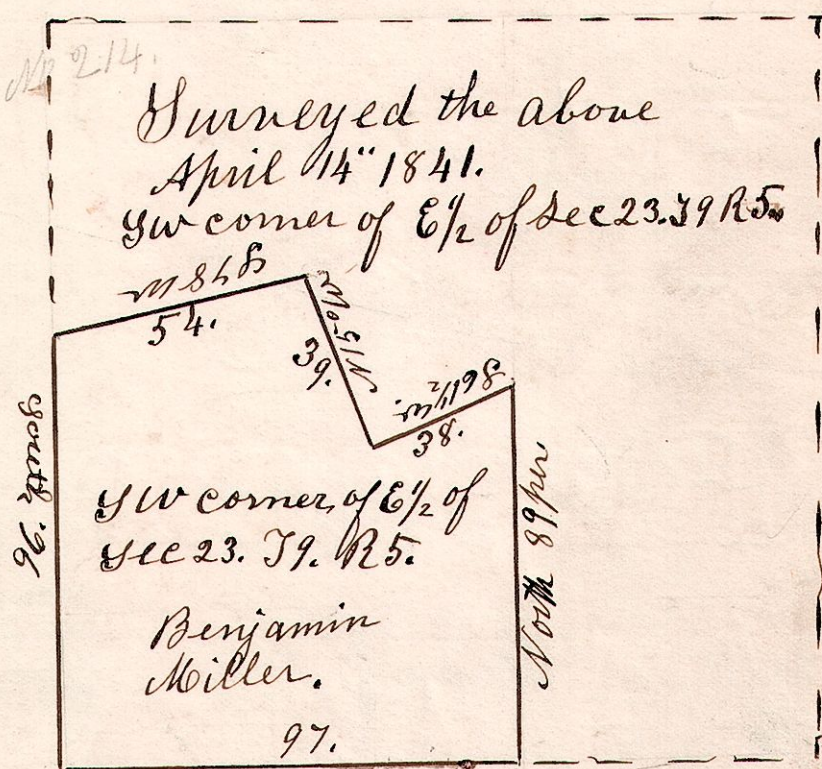 No 214.
Surveyed the above
April 14" 1841.
SW corner of E 1/2 of Sec 23. T9 R5.
S 78 W
54.
39.
S 61 1/2 W.
38.
South 96
North 89 per.
SW corner of E 1/2 of
Sec 23. T9. R5.
Benjamin
Miller.
97.